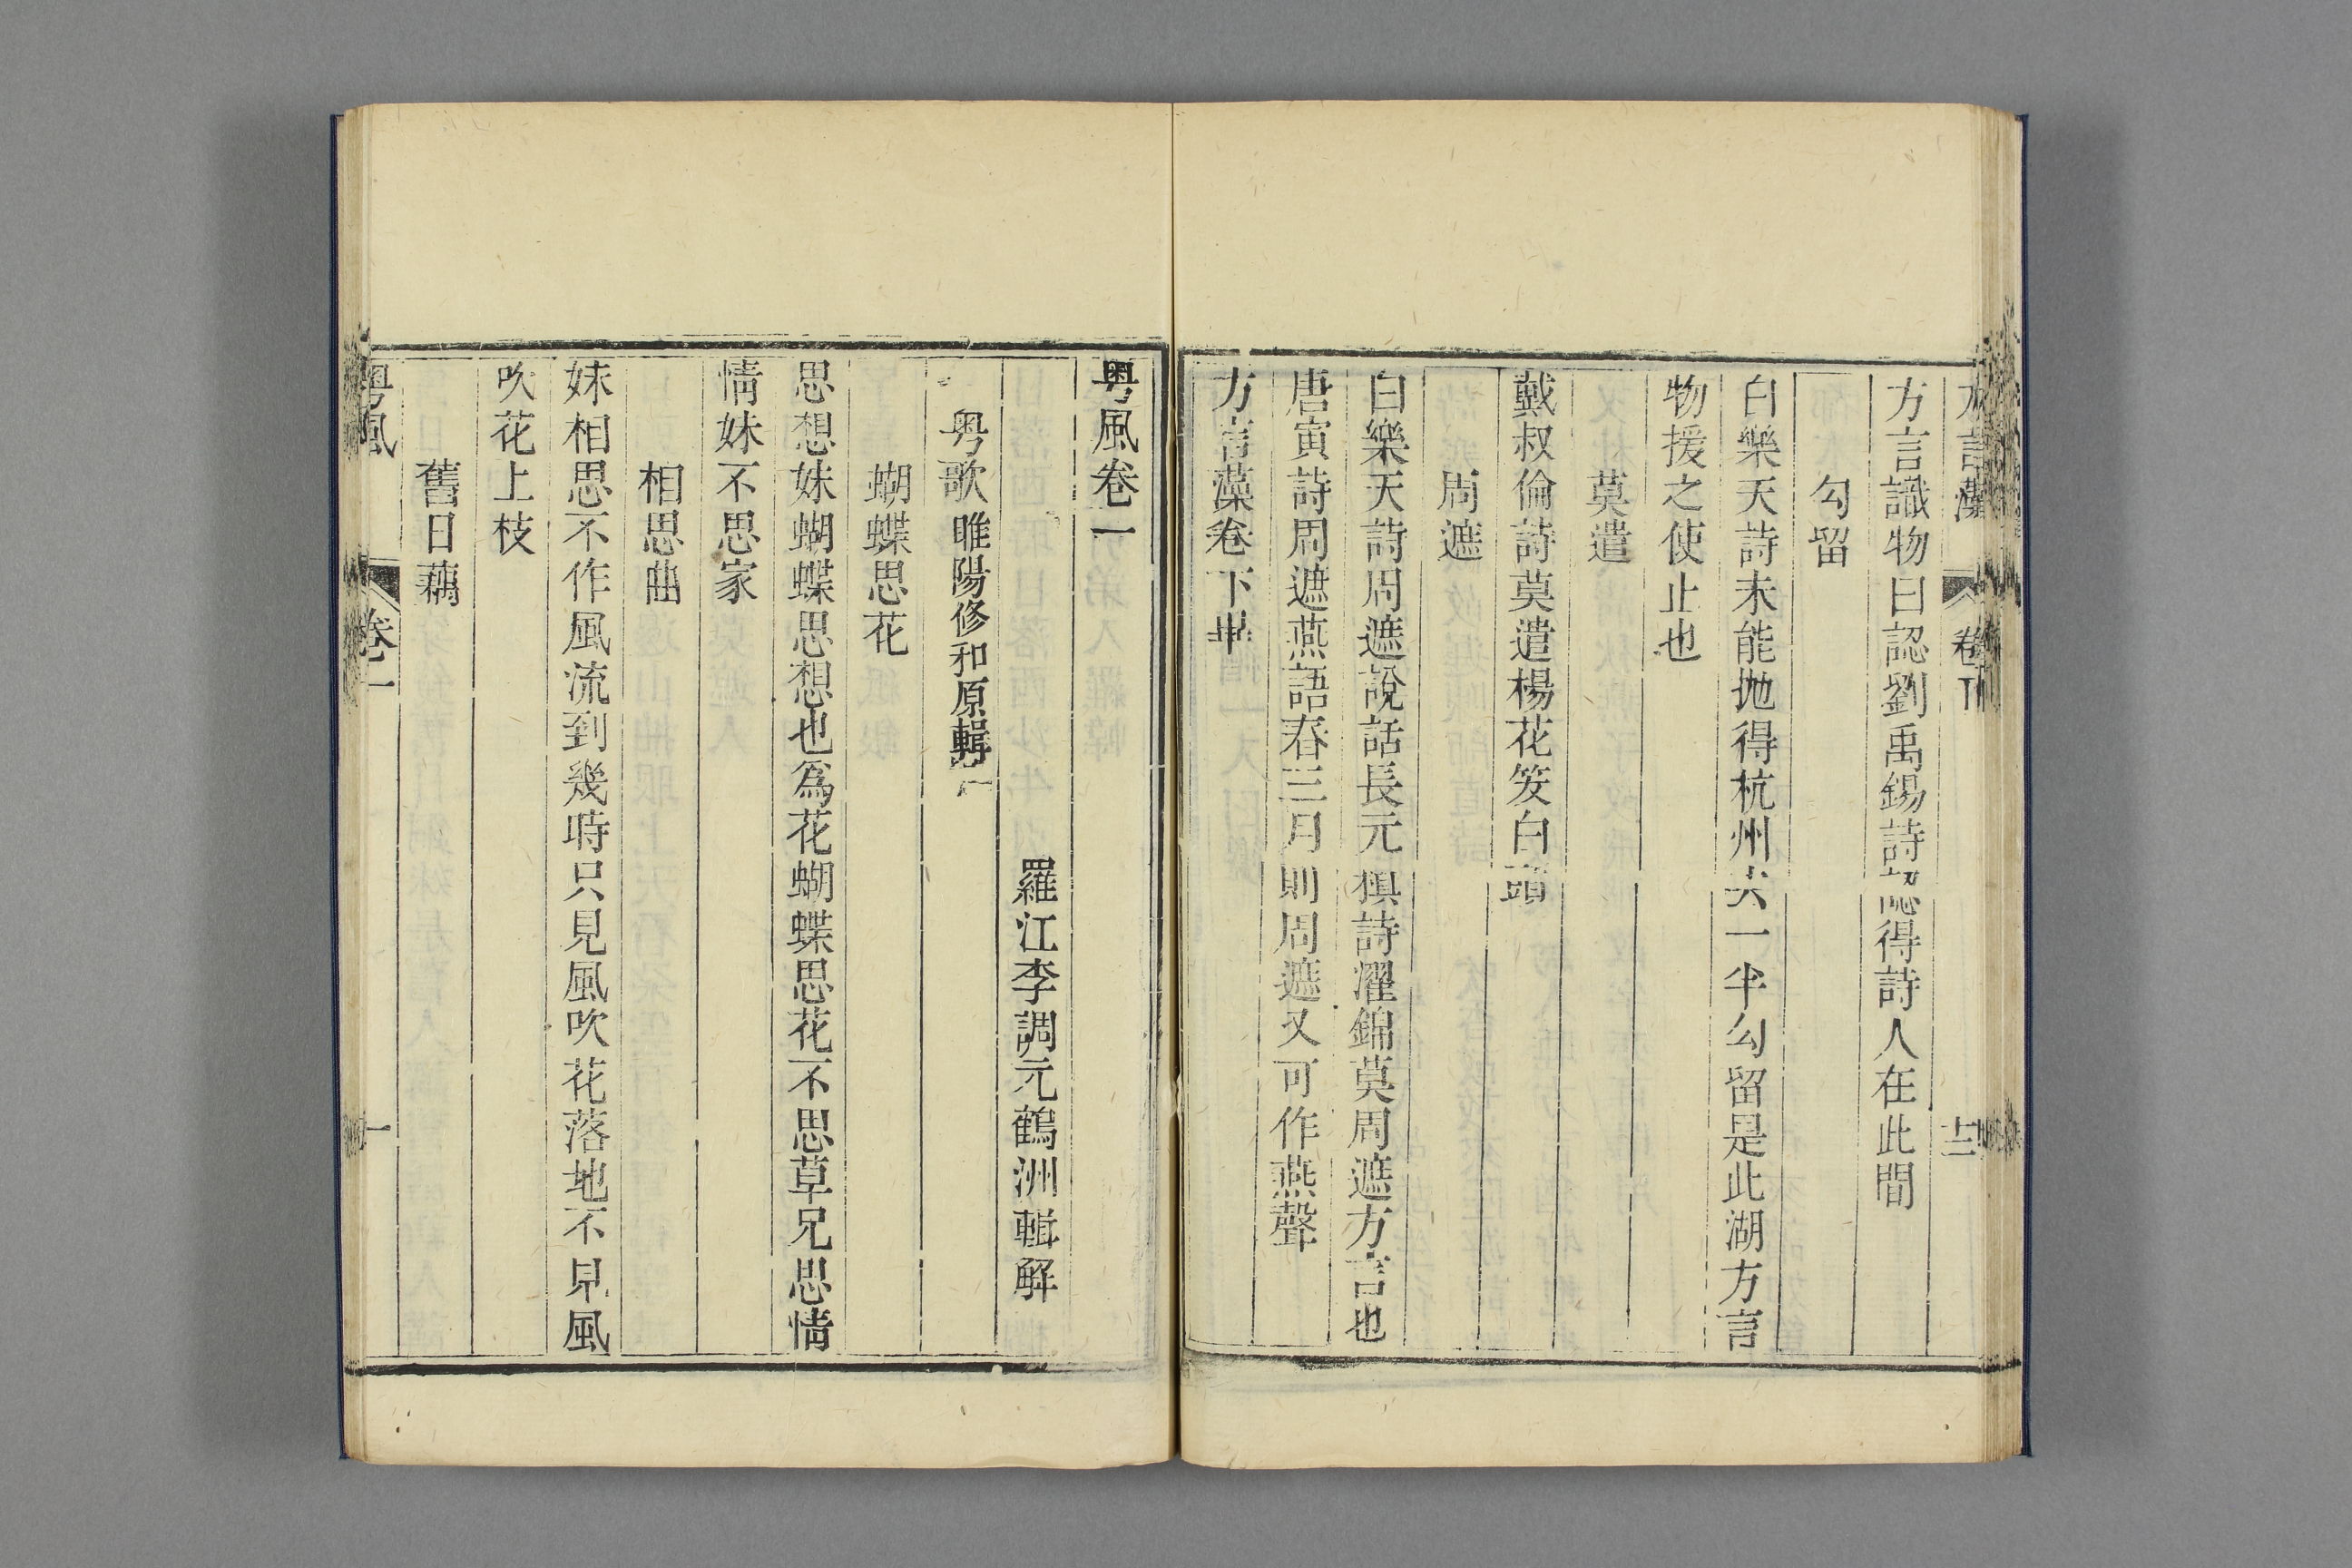 方言藻
卷下
十二
方言識物曰認劉禹錫詩認得詩人在此間
勾留
白樂天詩未能抛得杭州去一半勾留是此湖方言
物援之使止也
莫遣
戴叔倫詩莫遣楊花笑白頭
周遮
白樂天詩周遮說話長元稹詩濯錦莫周遮方言也
唐寅詩周遮燕語春三月則周遮又可作燕聲
方言藻卷下畢
粤風卷一
羅江李調元鶴洲輯解
粤歌睢陽修和原輯
蝴蝶思花
思想妹蝴蝶思想也為花蝴蝶思花不思草兄思情
情妹不思家
相思曲
妹相思不作風流到幾時只見風吹花落地不見風
吹花上枝
舊日藕
粤風
卷一
一